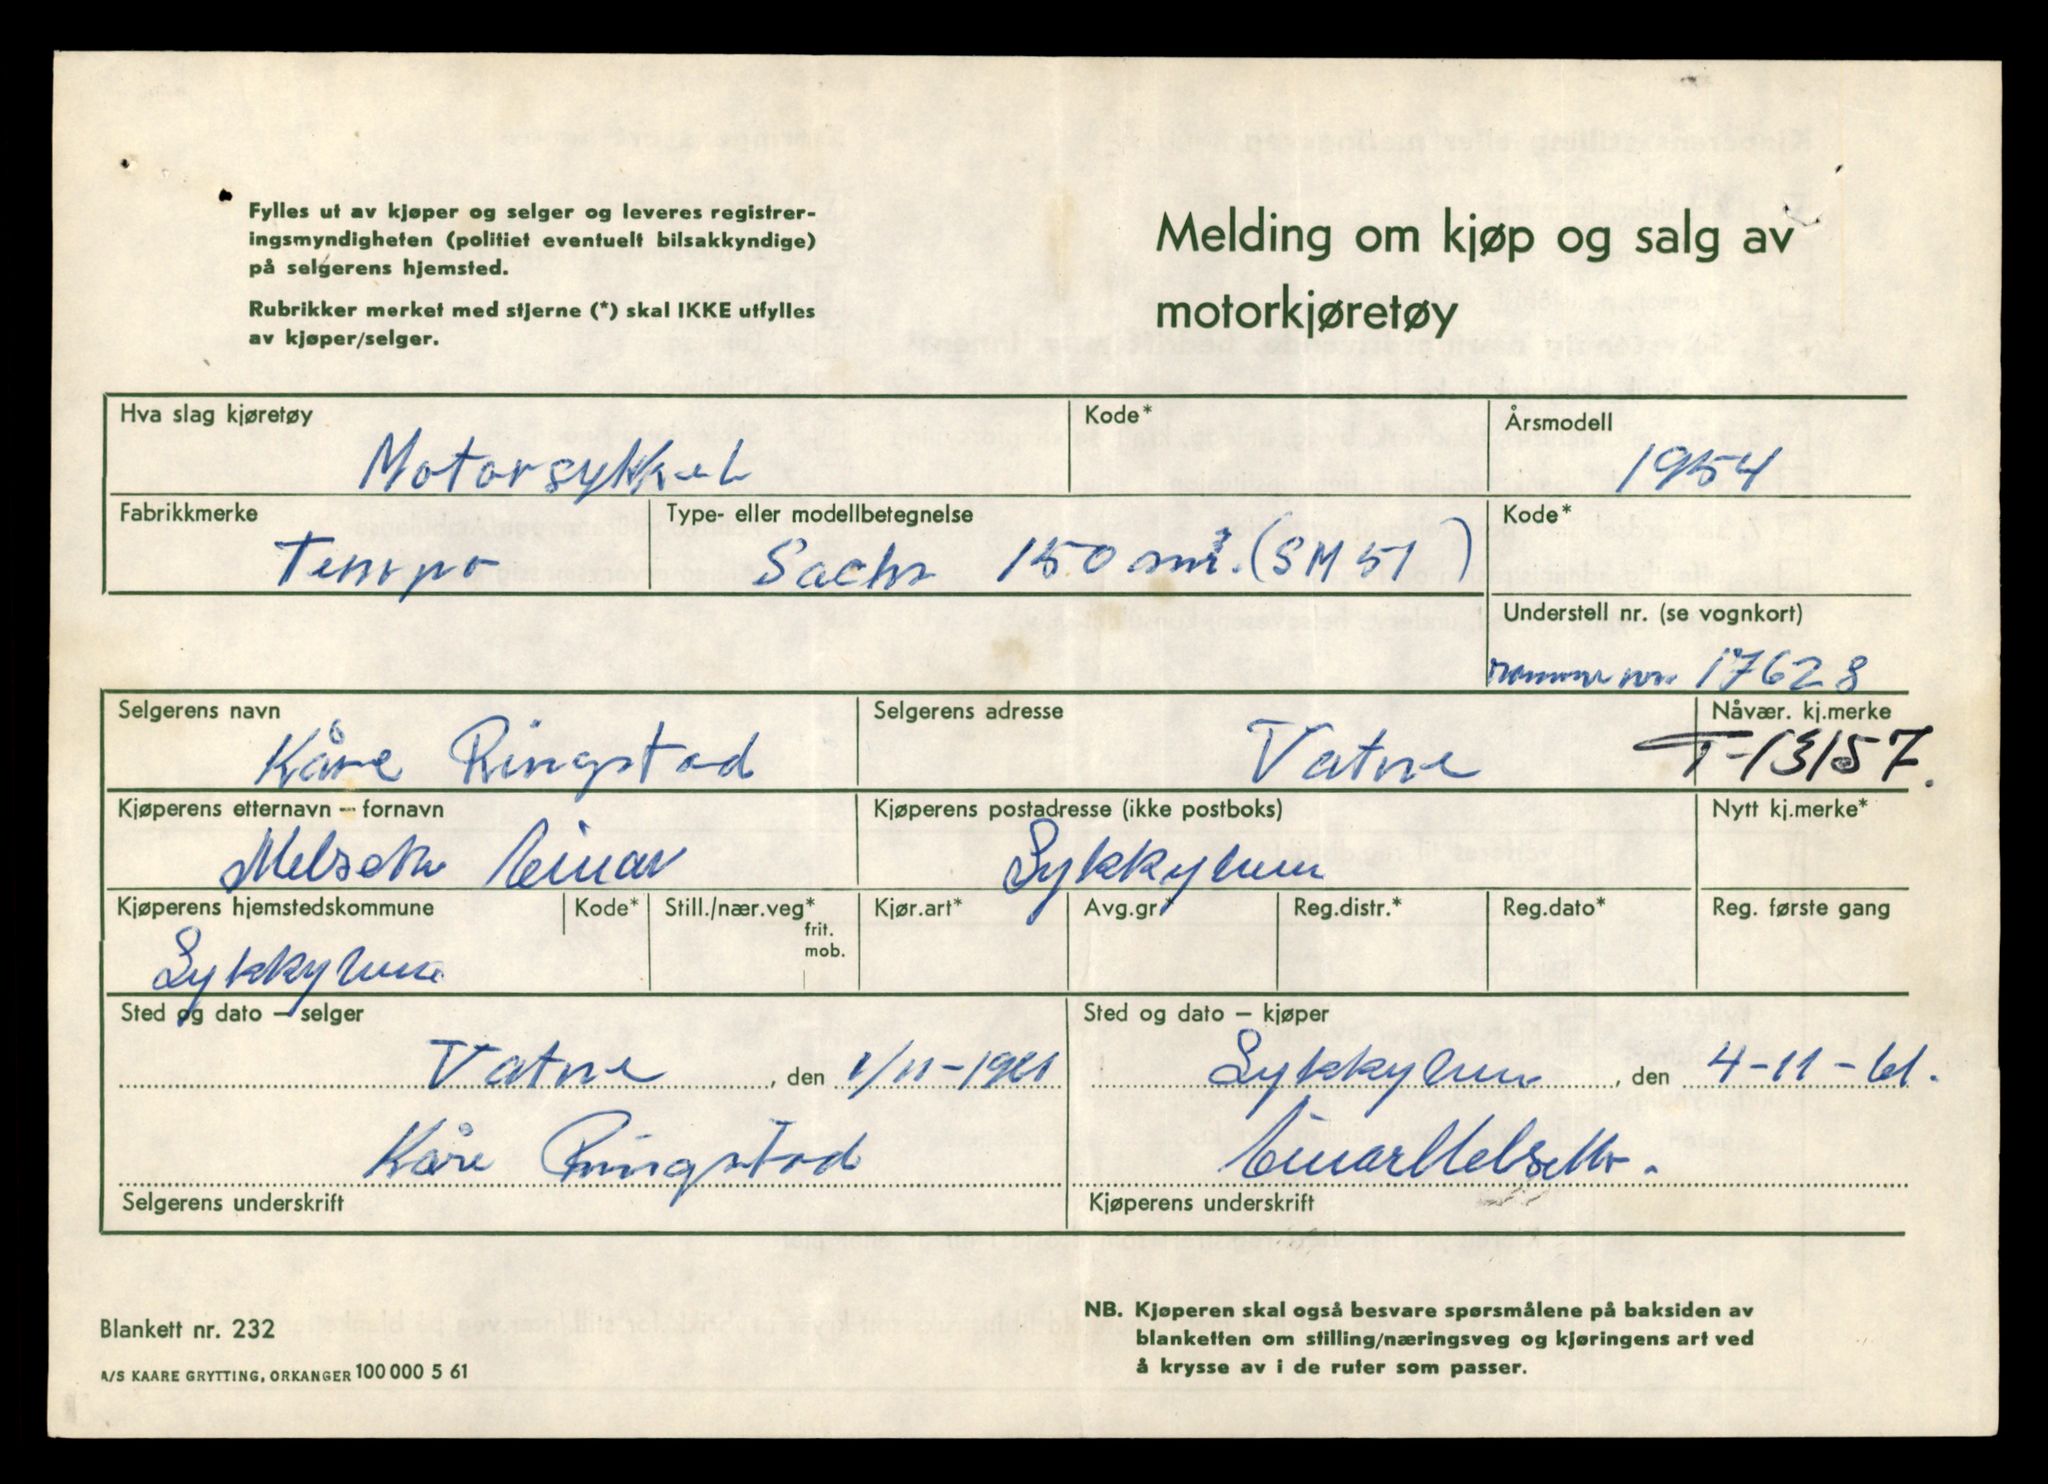 Fylles ut av kjøper og selger og leveres registrer-
ingsmyndigheten (politiet eventuelt bilsakkyndige)
på selgerens hjemsted.
Rubrikker merket med stjerne (*) skal IKKE utfylles
av kjøper/selger.
Melding om kjøp og salg av
motorkjøretøy
Hva slag kjøretøy
Motorsykkel
Kode*
Årsmodell
1954
Fabrikkmerke
Tempo
Type- eller modellbetegnelse
Sachs 150 (SM 51)
Kode*
Understell nr. (se vognkort)
ramme nr. 17628
Selgerens navn
Kåre Ringstad
Selgerens adresse
Vatne
Nåvær. kj.merke
T-13157.
Kjøperens etternavn – fornavn
Melseth Einar
Kjøperens postadresse (ikke postboks)
Sykkylven
Nytt kj.merke*
Kjøperens hjemstedskommune
Sykkylven
Kode*
Still./nær.veg*
frit.
mob.
Kjør.art*
Avg.gr*
Reg.distr.*
Reg.dato*
Reg. første gang
Sted og dato – selger
Vatne, den 1/11-1961
Kåre Ringstad
Selgerens underskrift
Sted og dato – kjøper
Sykkylven, den 4-11-61.
Einar Melseth.
Kjøperens underskrift
Blankett nr. 232
A/S KAARE GRYTTING, ORKANGER 100 000 5 61
NB. Kjøperen skal også besvare spørsmålene på baksiden av
blanketten om stilling/næringsveg og kjøringens art ved
å krysse av i de ruter som passer.